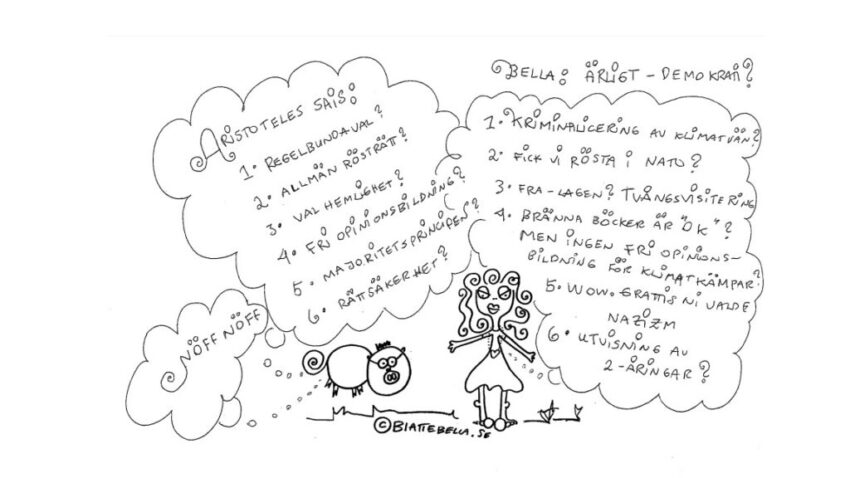 ARISTOTELES SAIS:
1. REGELBUNDA VAL?
2. ALLMÄN RÖSTRÄTT?
3. VALHEMLIGHET?
4. FRI OPINIONSBILDNING?
5. MAJORITETSPRINCIPEN?
6. RÄTTSÄKERHET?
NÖFF NÖFF
BELLA: ÄRLIGT - DEMOKRATI?
1. KRIMINALICERING AV KLIMATVÄN?
2. FICK VI RÖSTA I NATO?
3. FRA-LAGEN? TVÅNGSVISITERING
4. BRÄNNA BÖCKER ÄR "OK"?
MEN INGEN FRI OPINIONS-
BILDNING FÖR KLIMATKÄMPAR?
5. WOW. GRATTIS NI VALDE
NAZIZM
6. UTVISNING AV
2-ÅRINGAR?
© BLATTEBELLA.SE